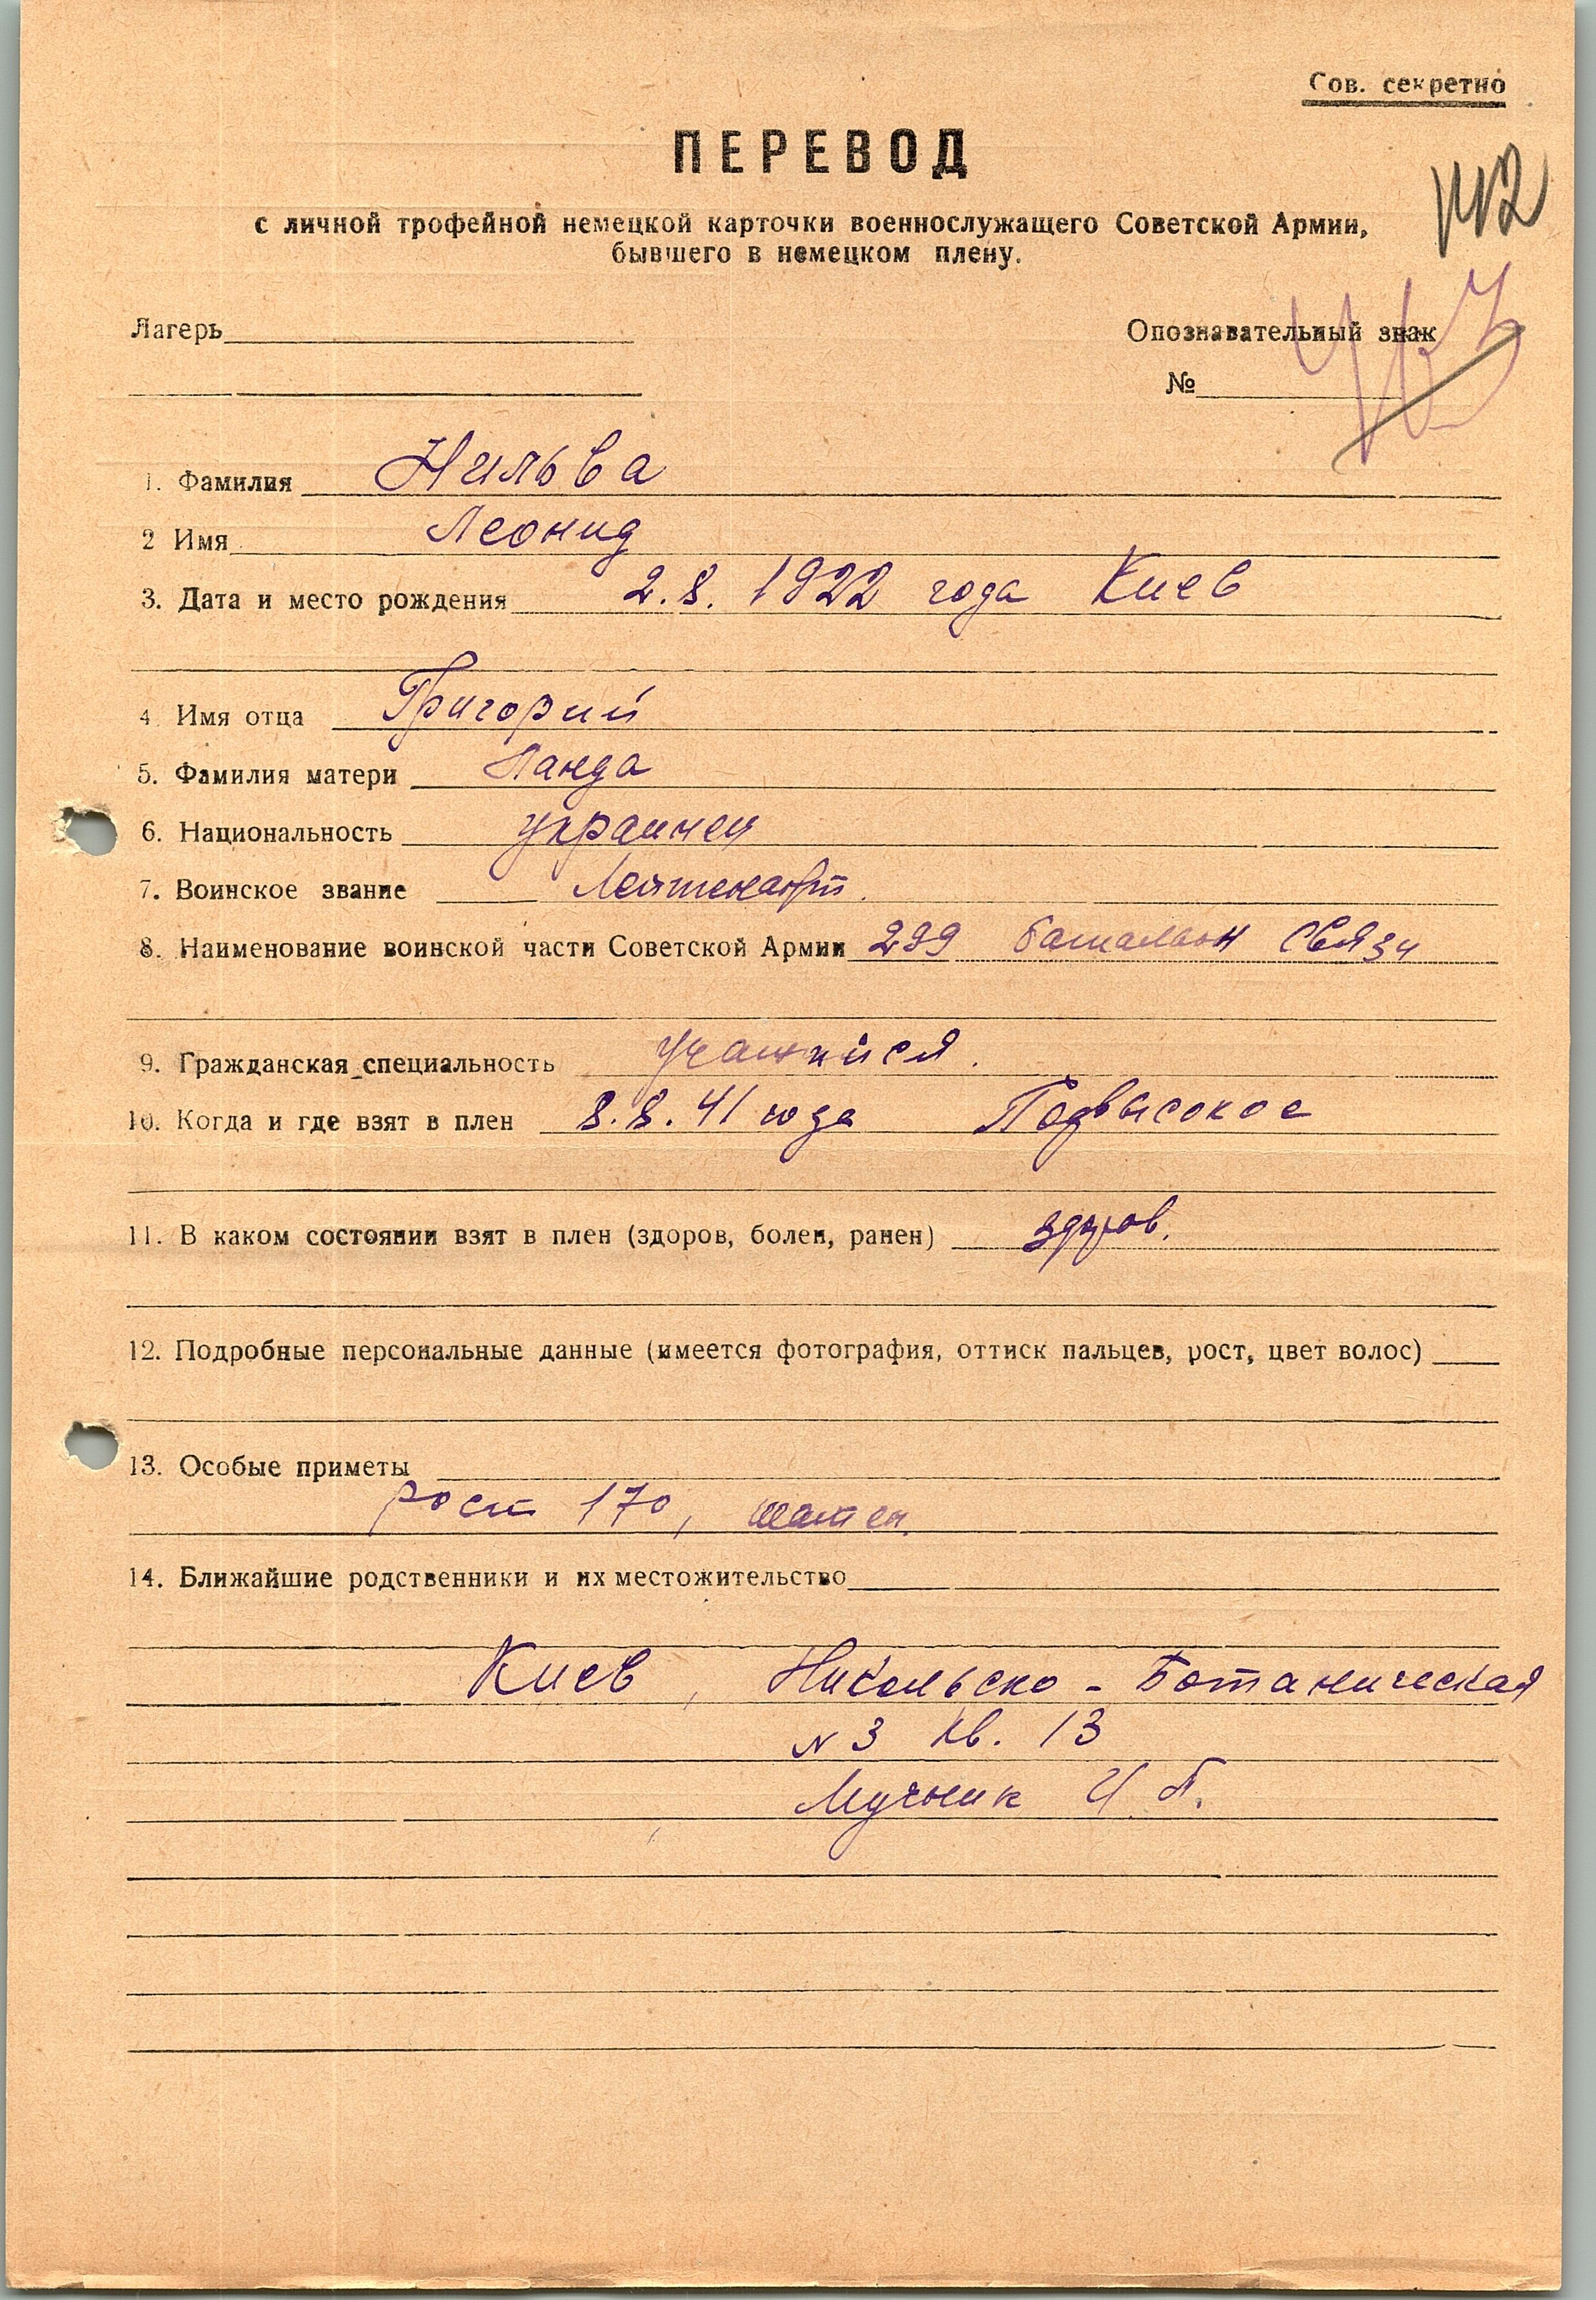 Сов. секретно
ПЕРЕВОД
с личной трофейной немецкой карточки военнослужащего Советской Армии,
бывшего в немецком плену.
Лагерь
Опознавательный знак
№
1. Фамилия Нильва
2 Имя Леонид
3. Дата и место рождения 2.8. 1922 года Киев
4. Имя отца Григорий
5. Фамилия матери Ланда
6. Национальность украинец
7. Воинское звание Лейтенант.
8. Наименование воинской части Советской Армии 299 батальон связи
9. Гражданская специальность учащийся.
10. Когда и где взят в плен 8.8.41 года Подвысокое
11. В каком состоянии взят в плен (здоров, болен, ранен) здоров.
12. Подробные персональные данные (имеется фотография, оттиск пальцев, рост, цвет волос)
13. Особые приметы
рост 170, шатен.
14. Ближайшие родственники и их местожительство
Киев, Никольско-Ботаническая
№3 кв. 13
Мучник